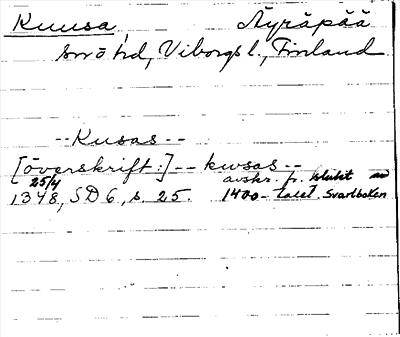 Kuusa Äyräpää
små hd, Viborgs l., Finland
-- Kusas --
[överskrift:] -- kusas --
25/4 avskr. fr. slutet av
1348, SD 6, s. 25. 1400-talet. Svartboken